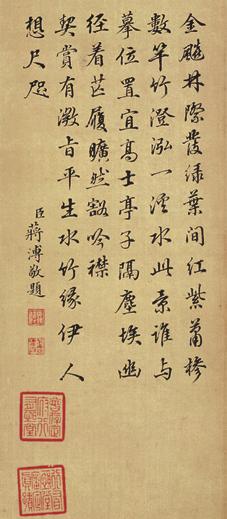 金飈林際發綠葉間紅紫蕭椮
數竿竹澄泓一溪水此景誰與
摹位置宜高士亭子隔塵埃幽
徑着芒屨曠然豁吟襟
契賞有微旨平生水竹緣伊人
想尺咫
臣蔣溥敬題